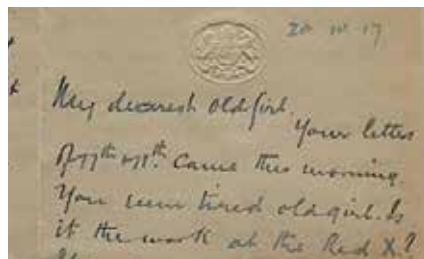 20 10 17
My dearest old girl.
Your letter
of 17th & 18th. came this morning.
You seem tired old girl. Is
it the work at the Red X.?